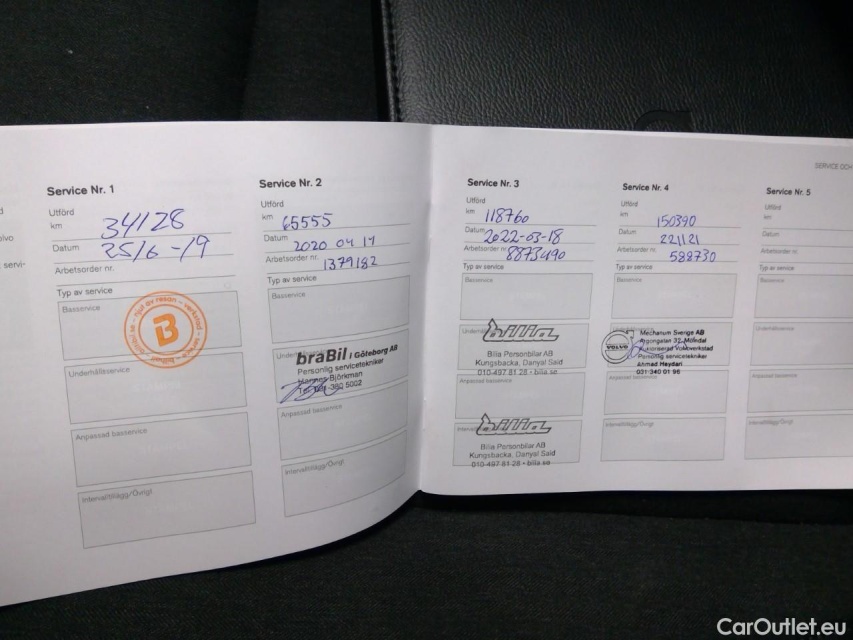 SERVICE OCH
Service Nr. 1
Utförd
km 34128
Datum 25/6 -19
Arbetsorder nr.
Typ av service
Basservice
B
Underhållsservice
Anpassad basservice
Intervalltillägg/Övrigt
Service Nr. 2
Utförd
km 65555
Datum 2020 04 17
Arbetsorder nr. 1379182
Typ av service
Basservice
braBil i Göteborg AB
Personlig servicetekniker
Björkman
5002
Anpassad basservice
Intervalltillägg/Övrigt
Service Nr. 3
Utförd
km 118760
Datum 2022-03-18
Arbetsorder nr. 8873490
Typ av service
Basservice
bilia
Bilia Personbilar AB
Kungsbacka, Danyal Said
010-497 81 28 - bilia.se
Anpassad basservice
bilia
Bilia Personbilar AB
Kungsbacka, Danyal Said
010-497 81 28 - bilia.se
Service Nr. 4
Utförd
km 150390
Datum 221121
Arbetsorder nr. 588730
Typ av service
Basservice
VOLVO
Mechanum Sverige AB
Argongatan 32 Mölndal
Auktoriserad Volvoverkstad
Personlig servicetekniker
Ahmad Heydari
031-340 01 96
Anpassad basservice
Intervalltillägg/Övrigt
Service Nr. 5
Utförd
km
Datum
Arbetsorder nr.
Typ av service
Basservice
Underhållsservice
Anpassad basservice
Intervalltillägg/Övrigt
CarOutlet.eu